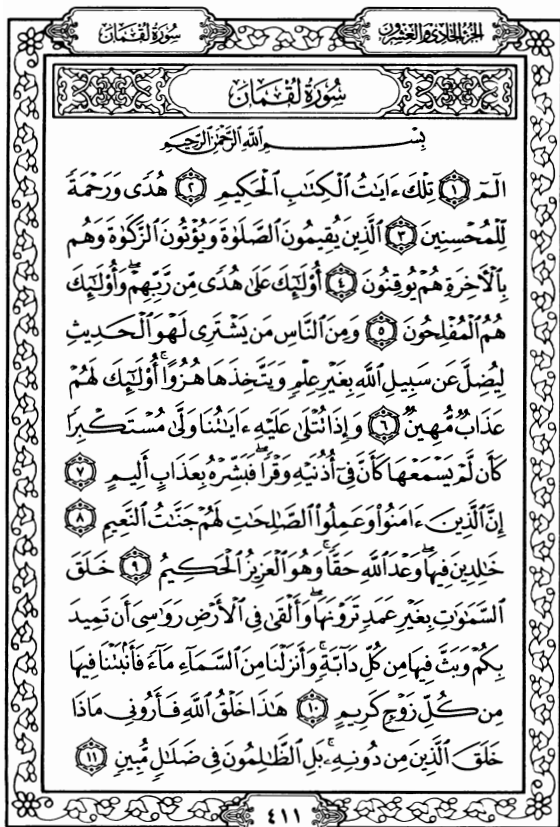 الجزء الحادي والعشرون
سورة لقمان
سُورَةُ لُقْمَان
بِسْمِ ٱللَّهِ ٱلرَّحْمَٰنِ ٱلرَّحِيمِ
الٓمٓ ١ تِلْكَ ءَايَٰتُ ٱلْكِتَٰبِ ٱلْحَكِيمِ ٢ هُدًى وَرَحْمَةً
لِّلْمُحْسِنِينَ ٣ ٱلَّذِينَ يُقِيمُونَ ٱلصَّلَوٰةَ وَيُؤْتُونَ ٱلزَّكَوٰةَ وَهُم
بِٱلْءَاخِرَةِ هُمْ يُوقِنُونَ ٤ أُو۟لَٰٓئِكَ عَلَىٰ هُدًى مِّن رَّبِّهِمْ ۖ وَأُو۟لَٰٓئِكَ
هُمُ ٱلْمُفْلِحُونَ ٥ وَمِنَ ٱلنَّاسِ مَن يَشْتَرِى لَهْوَ ٱلْحَدِيثِ
لِيُضِلَّ عَن سَبِيلِ ٱللَّهِ بِغَيْرِ عِلْمٍ وَيَتَّخِذَهَا هُزُوًا ۚ أُو۟لَٰٓئِكَ لَهُمْ
عَذَابٌ مُّهِينٌ ٦ وَإِذَا تُتْلَىٰ عَلَيْهِ ءَايَٰتُنَا وَلَّىٰ مُسْتَكْبِرًا
كَأَن لَّمْ يَسْمَعْهَا كَأَنَّ فِىٓ أُذُنَيْهِ وَقْرًا ۖ فَبَشِّرْهُ بِعَذَابٍ أَلِيمٍ ٧
إِنَّ ٱلَّذِينَ ءَامَنُوا۟ وَعَمِلُوا۟ ٱلصَّٰلِحَٰتِ لَهُمْ جَنَّٰتُ ٱلنَّعِيمِ ٨
خَٰلِدِينَ فِيهَا ۖ وَعْدَ ٱللَّهِ حَقًّا ۚ وَهُوَ ٱلْعَزِيزُ ٱلْحَكِيمُ ٩ خَلَقَ
ٱلسَّمَٰوَٰتِ بِغَيْرِ عَمَدٍ تَرَوْنَهَا ۖ وَأَلْقَىٰ فِى ٱلْأَرْضِ رَوَٰسِىَ أَن تَمِيدَ
بِكُمْ وَبَثَّ فِيهَا مِن كُلِّ دَآبَّةٍ ۚ وَأَنزَلْنَا مِنَ ٱلسَّمَآءِ مَآءً فَأَنۢبَتْنَا فِيهَا
مِن كُلِّ زَوْجٍ كَرِيمٍ ١٠ هَٰذَا خَلْقُ ٱللَّهِ فَأَرُونِى مَاذَا
خَلَقَ ٱلَّذِينَ مِن دُونِهِۦ ۚ بَلِ ٱلظَّٰلِمُونَ فِى ضَلَٰلٍ مُّبِينٍ ١١
٤١١